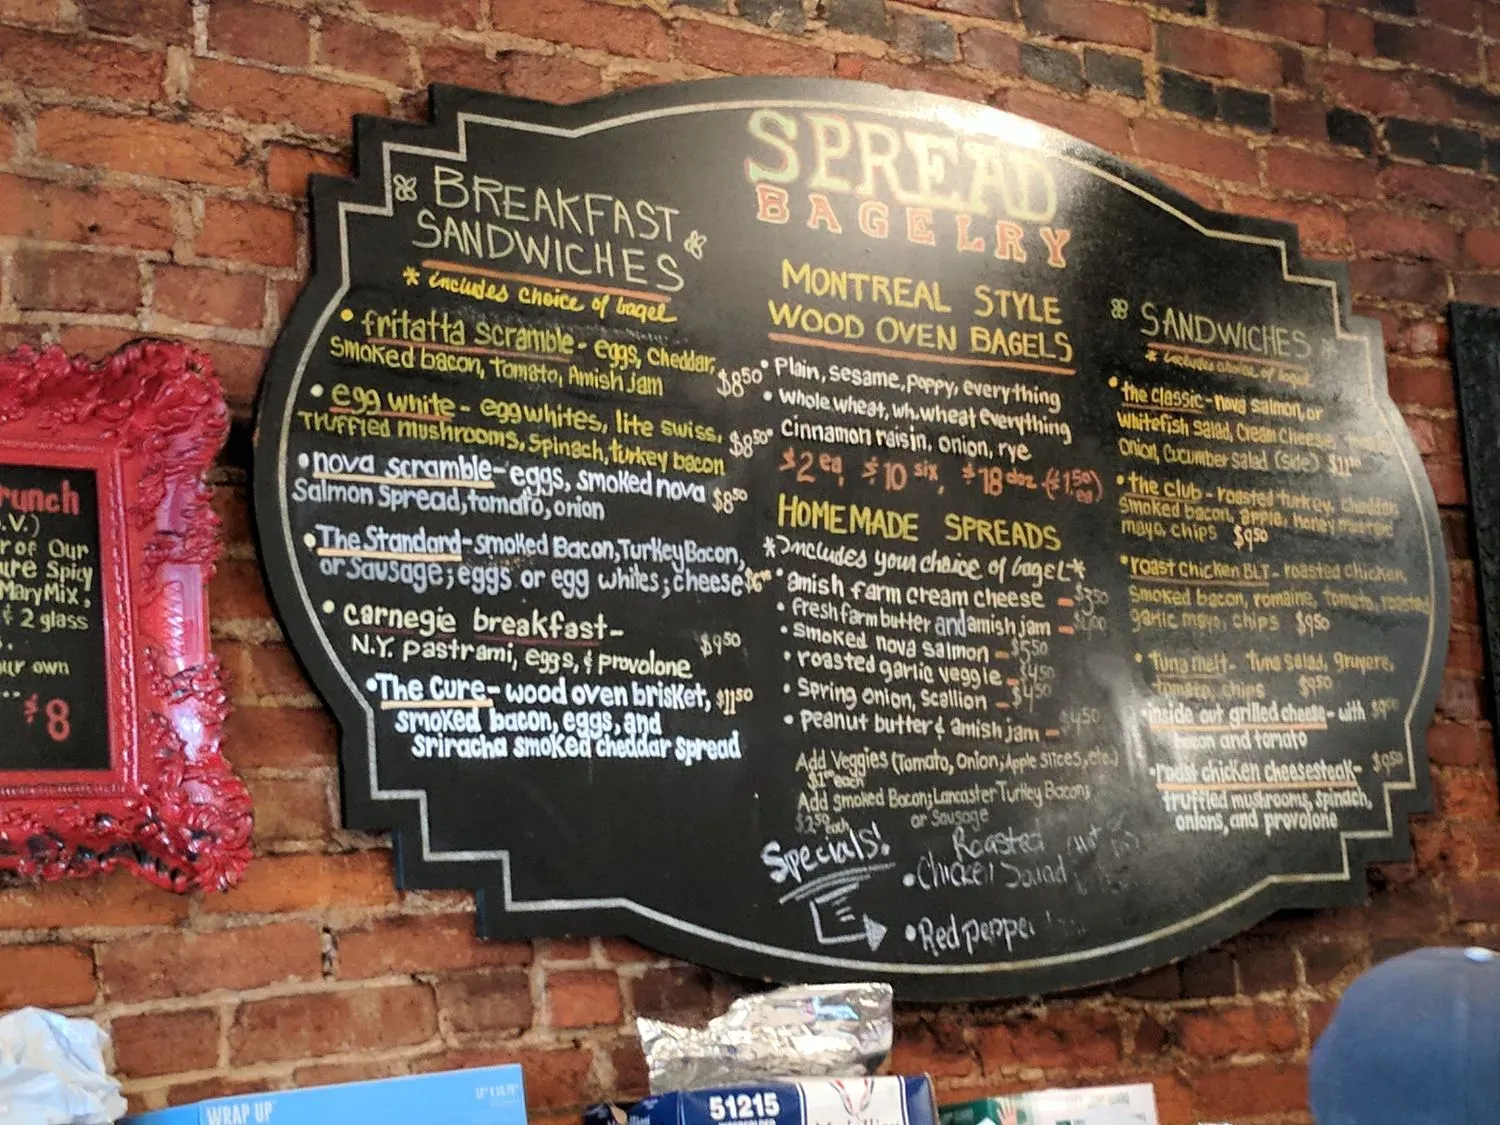 SPREAD
BAGELRY
BREAKFAST
SANDWICHES
* includes choice of bagel
• fritatta scramble - eggs, cheddar,
smoked bacon, tomato, Amish Jam $850
• egg white - egg whites, lite swiss,
Truffled mushrooms, spinach, turkey bacon $850
• nova scramble - eggs, smoked nova
Salmon Spread, tomato, onion $850
• The Standard - smoked Bacon, Turkey Bacon,
or Sausage; eggs or egg whites; cheese
• carnegie breakfast -
N.Y. pastrami, eggs, & provolone $950
• The Cure - wood oven brisket, $1150
smoked bacon, eggs, and
Sriracha smoked cheddar spread
MONTREAL STYLE
WOOD OVEN BAGELS
• Plain, sesame, poppy, everything
• whole wheat, wh.wheat everything
• cinnamon raisin, onion, rye
$2 ea, $10 six, $18 doz ($1.50 ea)
HOMEMADE SPREADS
*Includes your choice of bagel*
• amish farm cream cheese - $350
• fresh farm butter and amish jam -
• smoked nova salmon - $550
• roasted garlic veggie - $450
• Spring onion, scallion - $450
• peanut butter & amish jam - $450
Add Veggies (Tomato, Onion, Apple Slices, etc.)
$100 each
Add smoked Bacon; Lancaster Turkey Bacon;
$250 each or Sausage
Specials!
Roasted
• Chicken Salad
• Red pepper
SANDWICHES
* includes choice of bagel
• the classic - nova salmon, or
whitefish salad, cream cheese,
onion, cucumber salad (side)
• the club - roasted turkey, cheddar,
smoked bacon, apple, honey mustard
mayo, chips $950
• roast chicken BLT - roasted chicken,
smoked bacon, romaine, tomato, roasted
garlic mayo, chips $950
• Tuna melt - Tuna salad, gruyere,
tomato, chips $950
• inside out grilled cheese - with
bacon and tomato
• roast chicken cheesesteak - $950
truffled mushrooms, spinach,
onions, and provolone
runch
.V.)
r of Our
ure Spicy
Mary Mix,
& 2 glass
ur own
$8
WRAP UP
51215